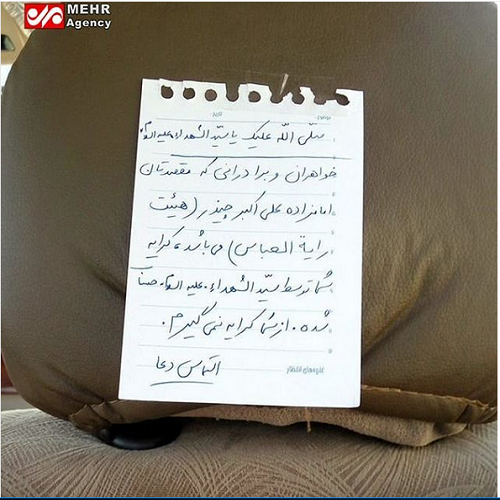 MEHR
Agency
موضوع
تاریخ
صلّی الله علیک یا سیّد الشهداء علیه السلام
خواهران و برادرانی که مقصدتان
امامزاده علی اکبر چیذر (هیئت
رایة العباس) می باشد، کرایه
شما توسط سیّد الشهداء علیه السلام حساب
شده. از شما کرایه نمی گیرم.
التماس دعا